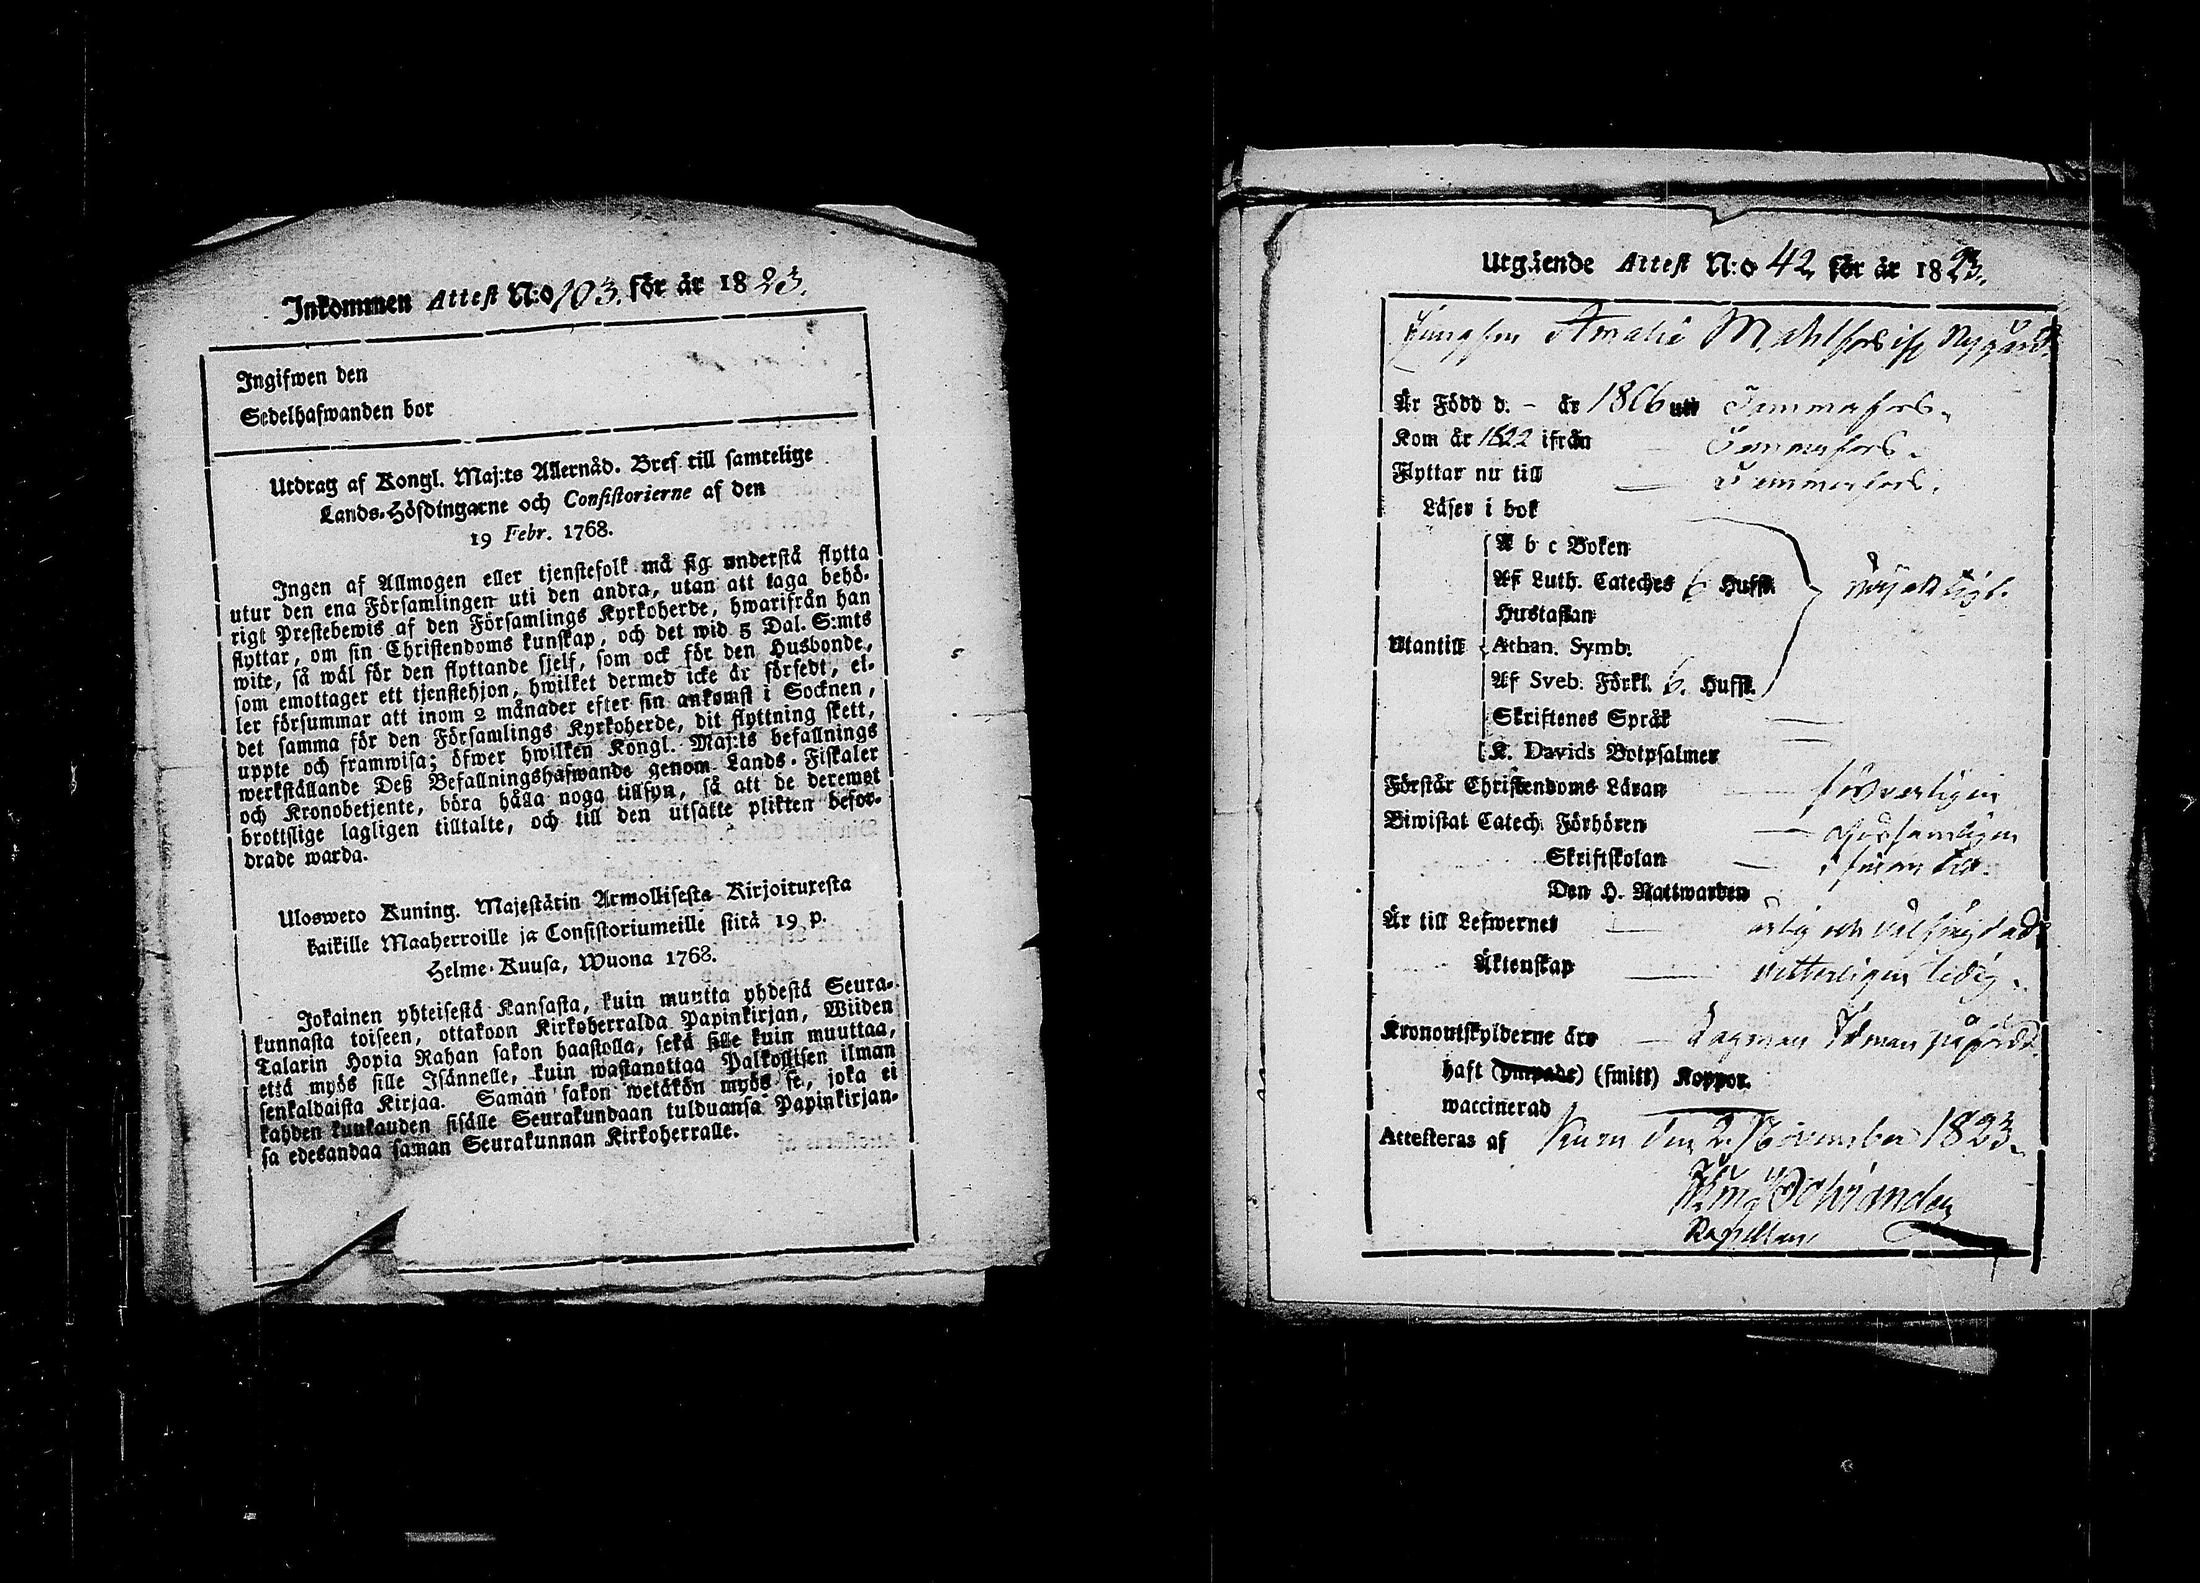 Inkommen Attest N:o 103. för år 1823.
Ingifwen den
Sedelhafwanden bor
Utdrag af Kongl. Maj:ts Allernåd. Bref till samtelige
Lands-Höfdingarne och Consistorierne af den
19 Febr. 1768.
Ingen af Allmogen eller tjenstefolk må sig understå flytta
utur den ena Församlingen uti den andra, utan att taga behö-
rigt Prestebewis af den Församlings Kyrkoherde, hwarifrån han
flyttar, om sin Christendoms kunskap, och det wid 5 Dal. S:mts
wite, så wäl för den flyttande sjelf, som ock för den Husbonde,
som emottager ett tjenstehjon, hwilket dermed icke är försedt, el-
ler försummar att inom 2 månader efter sin ankomst i Socknen,
det samma för den Församlings Kyrkoherde, dit flyttning skett,
uppte och framwisa; öfwer hwilken Kongl. Maj:ts befallnings
werkställande Deß Befallningshafwande genom Lands-Fiskaler
och Kronobetjente, böra hålla noga tillsyn, så att de deremot
brottslige lagligen tilltalte, och till den utsatte plikten befor-
drade warda.
Ulosweto Kuning. Majestätin Armollisesta Kirjoituxesta
kaikille Maaherroille ja Consistoriumeille siitä 19 p.
Helme-Kuusa, Wuona 1768.
Jokainen yhteisestä Kansasta, kuin muutta yhdestä Seura-
kunnasta toiseen, ottakoon Kirkoherralda Papinkirjan, Wiiden
Talarin Hopia Rahan sakon haastolla, sekä sille kuin muuttaa,
että myös sille Isännelle, kuin wastanottaa Palkollisen ilman
senkaldaista Kirjaa. Saman sakon wetäkön myös se, joka ei
kahden kuukauden sisälle Seurakundaan tulduansa Papinkirjan-
sa edesandaa saman Seurakunnan Kirkoherralle.
Utgående Attest N:o 42 för år 1823.
Jungfru Amalie Mahlfors ifr Nygård
Är Född d. – år 1806 uti Tammerfors.
Kom år 1822 ifrån Tammerfors.
Flyttar nu till Tammerfors.
Läser i bok
A b c Boken
Af Luth. Cateches 6 Hufst.
Hustaflan
Utantill Athan. Symb.
Af Sveb. Förkl. 6. Hufst.
Skriftenes Språk
K. Davids Botpsalmer
Förstår Christendoms Läran försvarligen
Biwistat Catech. Förhören
Skriftskolan
Den H. Nattwarden
Är till Lefwernet ärlig och
Äktenskap vitterligen ledig.
Kronoutskylderne äro
haft (ympade) (smitt) Koppor.
waccinerad
Attesteras af Kuru den 2 November 1823.
Kapellan